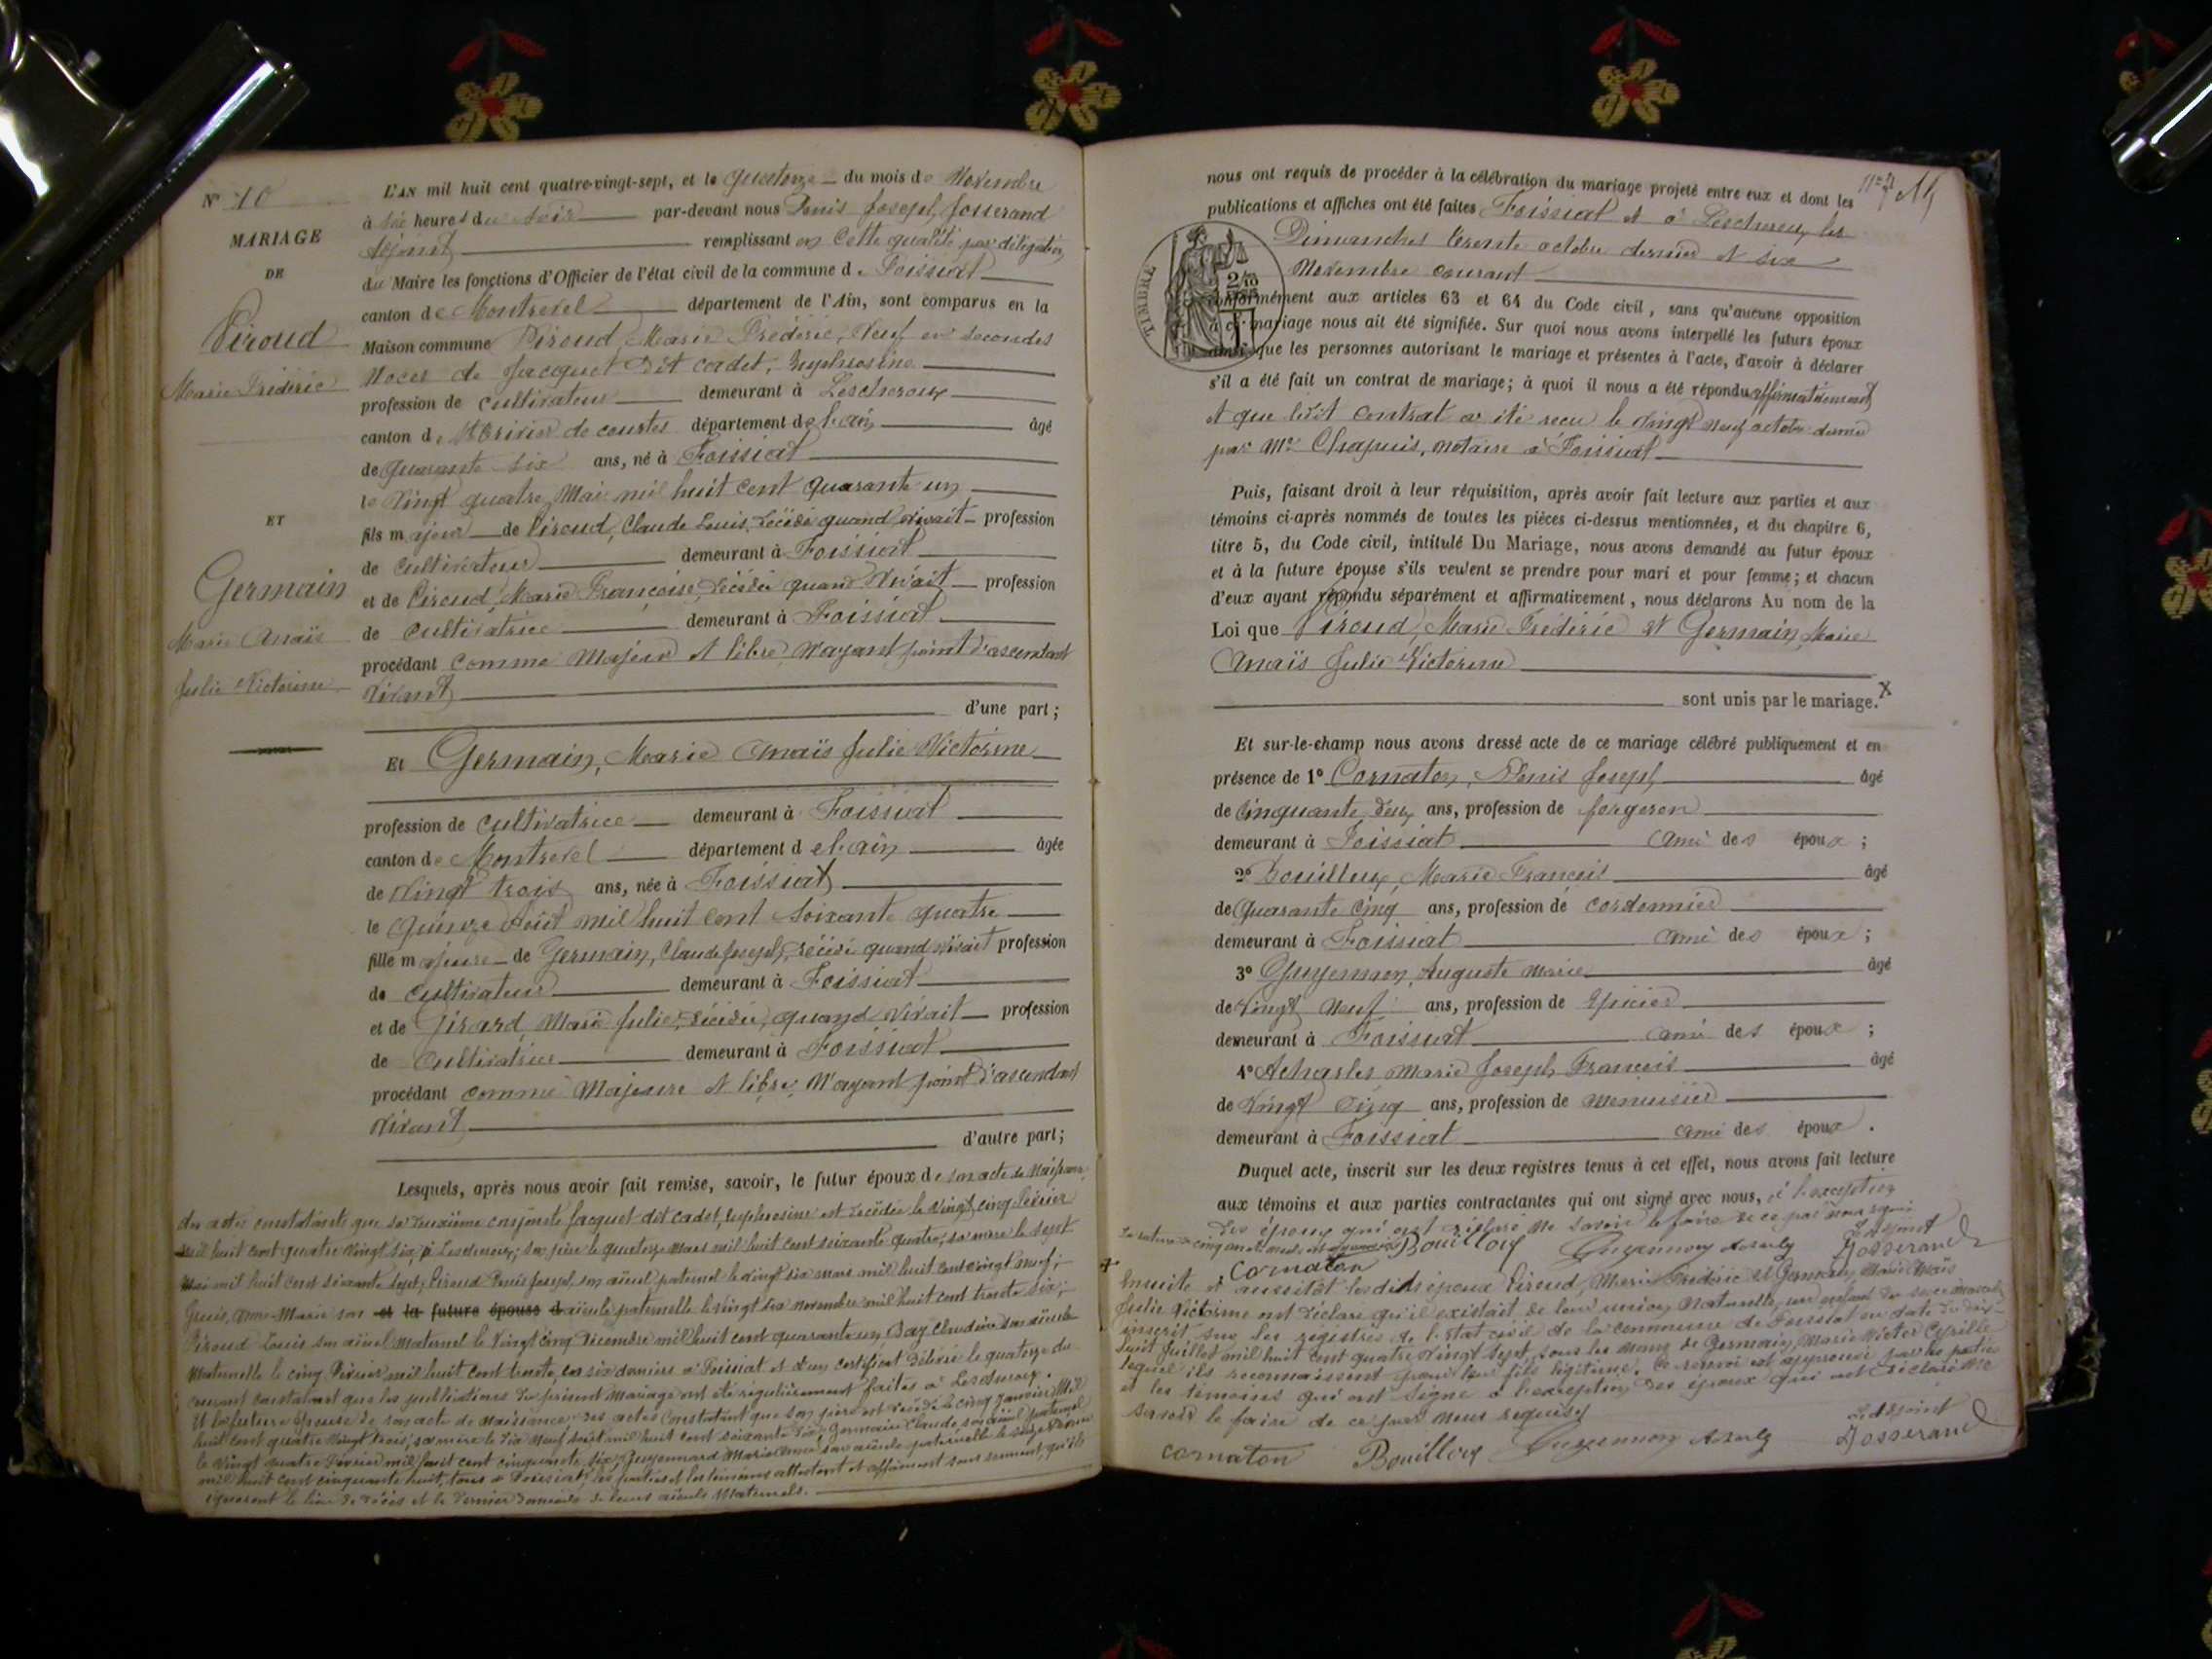 N° 10
MARIAGE
DE
Piroud
Marie Frédéric
ET
Germain
Marie Anaïs
Julie Victorine
L'AN mil huit cent quatre-vingt-sept, et le quatorze du mois de Novembre
à six heures du soir par-devant nous Denis Joseph Josserand
Adjoint remplissant en cette qualité par délégation
du Maire les fonctions d'Officier de l'état civil de la commune de Foissiat
canton de Montrevel département de l'Ain, sont comparus en la
Maison commune Piroud, Marie Frédéric, Veuf en secondes
Noces de Jacquet dit cadet, Euphrosine
profession de cultivateur demeurant à Lescheroux
canton de St Trivier de courtes département de l'ain âgé
de quarante six ans, né à Foissiat
le vingt quatre Mai mil huit cent quarante un
fils majeur de Piroud, Claude Louis, décédé quand vivait profession
de cultivateur demeurant à Foissiat
et de Piroud, Marie Françoise, décédée quand vivait profession
de cultivatrice demeurant à Foissiat
procédant comme Majeur et libre, n'ayant point d'ascendant
vivant
d'une part;
Et Germain, Marie Anaïs Julie Victorine
profession de cultivatrice demeurant à Foissiat
canton de Montrevel département de l'ain âgée
de vingt trois ans, née à Foissiat
le quinze Août mil huit cent soixante quatre
fille majeure de Germain, Claude Joseph, décédé quand vivait profession
de cultivateur demeurant à Foissiat
et de Girard, Marie Julie, décédée, quand vivait profession
de cultivatrice demeurant à Foissiat
procédant comme Majeure et libre, N'ayant point d'ascendant
vivant
d'autre part;
Lesquels, après nous avoir fait remise, savoir, le futur époux de son acte de Naissance,
des actes constatants que sa deuxième conjointe Jacquet dit cadet, Euphrosine est décédée le vingt cinq Février
mil huit cent quatre vingt six, à Lescheroux; son père le quatorze mars mil huit cent soixante quatre; sa mère le sept
Mai mil huit cent soixante sept; Piroud Denis Joseph, son aïeul paternel le vingt six mars mil huit cent vingt neuf;
Anne-Marie son et la future épouse d aïeule paternelle le vingt six novembre mil huit cent trente six;
Piroud Louis son aïeul Maternel le vingt cinq décembre mil huit cent quarante un, Bay Claudine son aïeule
Maternelle le cinq Février mil huit cent trente, ces six derniers à Foissiat et d'un certificat délivré le quatorze du
courant constatant que les publications du présent Mariage ont été régulièrement faites à Lescheroux.
Et la future épouse de son acte de Naissance, des actes constatant que son père est décédé le cinq Janvier Mil
huit cent quatre vingt trois, sa mère le dix neuf août mil huit cent soixante dix, Germain Claude, son aïeul paternel
le vingt quatre Février mil huit cent cinquante six, Guyennard Marie Anne, son aïeule paternelle le
mil huit cent cinquante huit, tous à Foissiat, les parties et les témoins attestent et affirment sous serment, qu'ils
ignorent le lieu de décès et le dernier domicile de leurs aïeuls Maternels.
nous ont requis de procéder à la célébration du mariage projeté entre eux et dont les
publications et affiches ont été faites Foissiat et à Lescheroux, les
Dimanches trente octobre dernier et six
Novembre courant
TIMBRE
conformément aux articles 63 et 64 du Code civil, sans qu'aucune opposition
à ce mariage nous ait été signifiée. Sur quoi nous avons interpellé les futurs époux
ainsi que les personnes autorisant le mariage et présentes à l'acte, d'avoir à déclarer
s'il a été fait un contrat de mariage; à quoi il nous a été répondu affirmativement
et que ledit contrat a été reçu le vingt neuf octobre dernier
par Me Chapuis, notaire à Foissiat
Puis, faisant droit à leur réquisition, après avoir fait lecture aux parties et aux
témoins ci-après nommés de toutes les pièces ci-dessus mentionnées, et du chapitre 6,
titre 5, du Code civil, intitulé Du Mariage, nous avons demandé au futur époux
et à la future épouse s'ils veulent se prendre pour mari et pour femme; et chacun
d'eux ayant répondu séparément et affirmativement, nous déclarons Au nom de la
Loi que Piroud, Marie Frédéric et Germain, Marie
Anaïs Julie Victorine
sont unis par le mariage. X
Et sur-le-champ nous avons dressé acte de ce mariage célébré publiquement et en
présence de 1° Cornaton, Denis Joseph, âgé
de cinquante deux ans, profession de forgeron
demeurant à Foissiat ami des époux;
2° Bouilloux, Marie François âgé
de quarante cinq ans, profession de cordonnier
demeurant à Foissiat ami des époux;
3° Guyennon, Auguste Marie âgé
de vingt neuf ans, profession de Epicier
demeurant à Foissiat ami des époux;
4° Acharles Marie Joseph François âgé
de vingt cinq ans, profession de menuisier
demeurant à Foissiat ami des époux.
Duquel acte, inscrit sur les deux registres tenus à cet effet, nous avons fait lecture
aux témoins et aux parties contractantes qui ont signé avec nous, à l'exception
des époux qui ont déclaré ne savoir le faire de ce par nous requis
Bouilloux Guyennon L'adjoint Josserand
Cornaton
Ensuite et aussitôt lesdits époux Piroud, Marie Frédéric et Germain, Marie Anaïs
Julie Victorine ont déclaré qu'il existait de leur union Naturelle, un enfant du sexe masculin
inscrit sur les registres de l'état civil de la commune de Foissiat en date du dix-
sept Juillet mil huit cent quatre vingt sept, sous les noms de Germain, Marie Victor Cyrille
lequel ils reconnaissent pour leur fils légitime. Ce renvoi est approuvé par les parties
et les témoins qui ont signé à l'exception des époux qui ont déclaré ne
savoir le faire de ce par nous requis
cornaton Bouilloux Guyennon L'adjoint Josserand